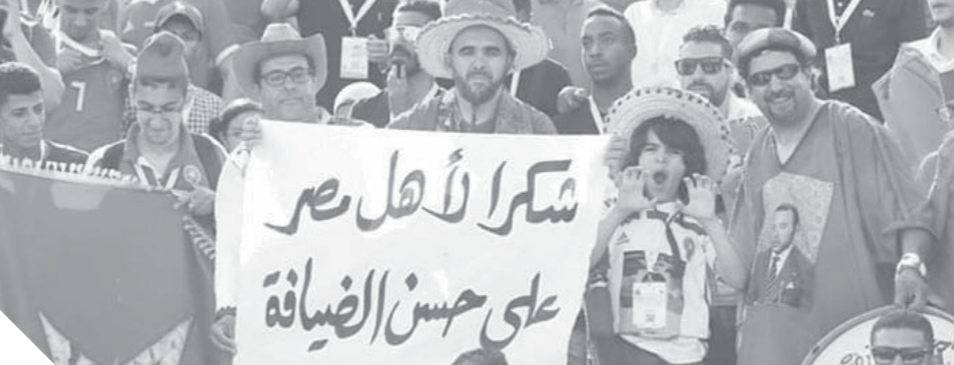 شكرا لأهل مصر
على حسن الضيافة
7